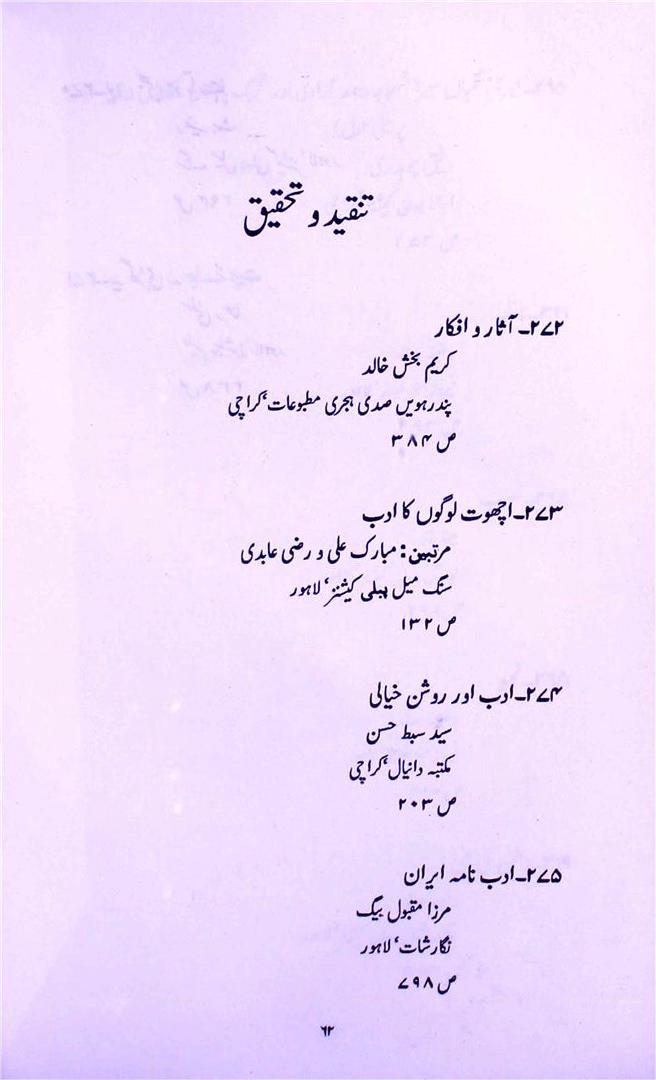 تنقید و تحقیق
۲۷۲۔ آثار و افکار
کریم بخش خالد
پندرہویں صدی ہجری مطبوعات، کراچی
ص ۳۸۴
۲۷۳۔ اچھوت لوگوں کا ادب
مرتبین: مبارک علی و رضی عابدی
سنگ میل پبلی کیشنز، لاہور
ص ۱۳۲
۲۷۴۔ ادب اور روشن خیالی
سید سبط حسن
مکتبہ دانیال، کراچی
ص ۲۰۳
۲۷۵۔ ادب نامہ ایران
مرزا مقبول بیگ
نگارشات، لاہور
ص ۷۹۸
۶۲